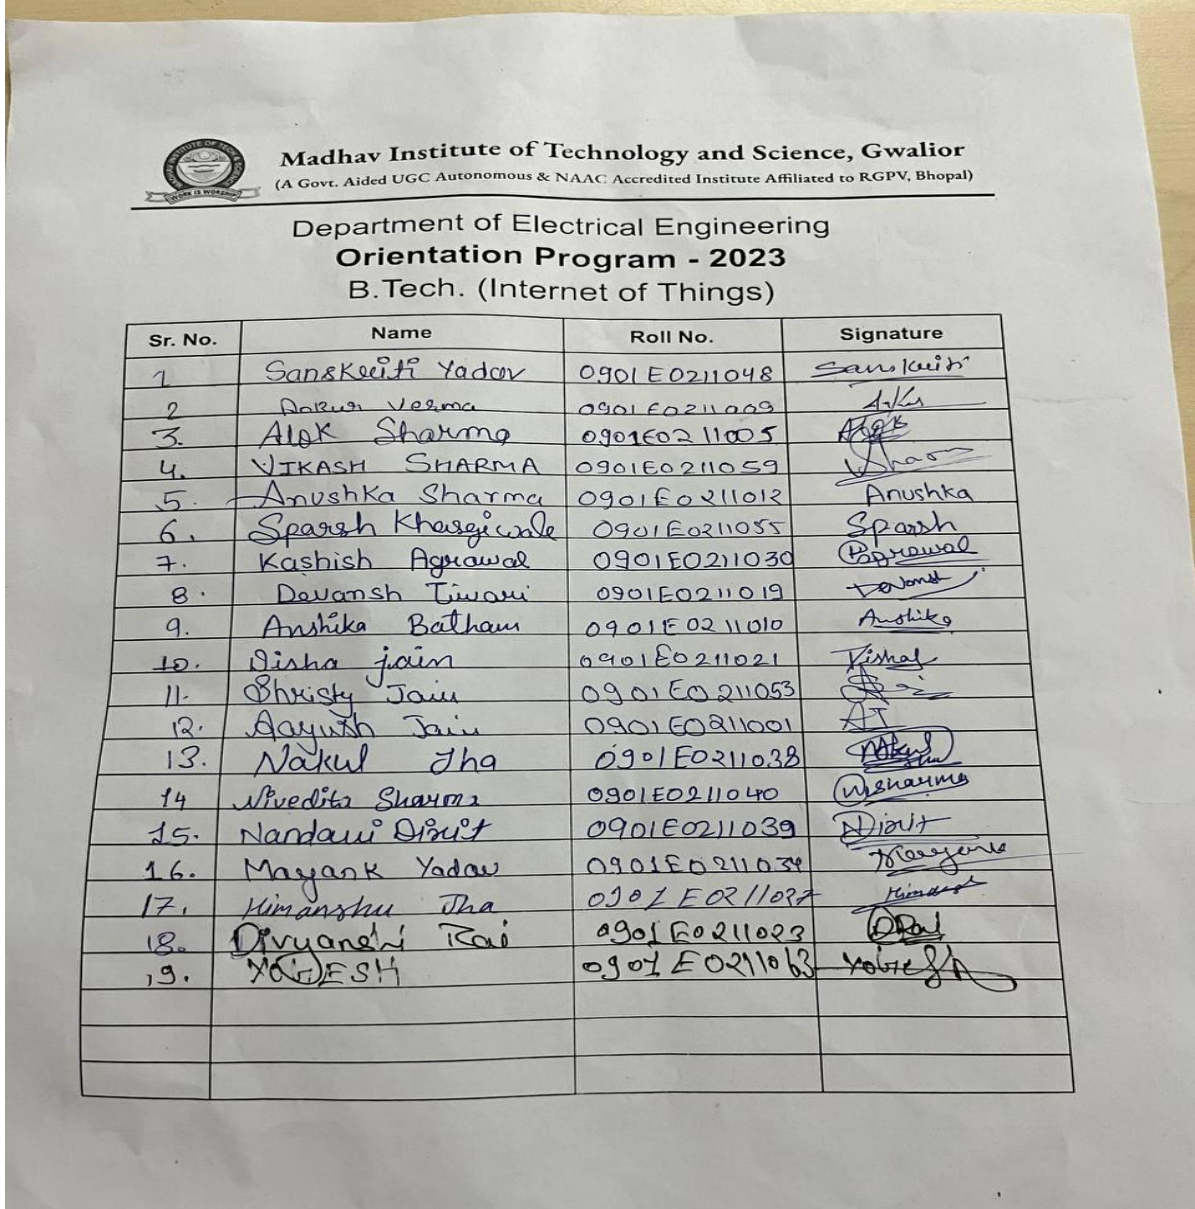 Madhav Institute of Technology and Science, Gwalior
(A Govt. Aided UGC Autonomous & NAAC Accredited Institute Affiliated to RGPV, Bhopal)
WORK IS WORSHIP
Department of Electrical Engineering
Orientation Program - 2023
B.Tech. (Internet of Things)
Sr. No. Name Roll No. Signature
1 Sanskriti Yadav 0901EO211048 Sanskriti
2 Ankur Verma 0901EO211009
3. Alok Sharma 0901EO211005 Alok
4. VIKASH SHARMA 0901EO211059
5. Anushka Sharma 0901EO211012 Anushka
6. Sparsh Khasgiwale 0901EO211055 Sparsh
7. Kashish Agrawal 0901EO211030 Agrawal
8. Devansh Tiwari 0901EO211019 Devansh
9. Anshika Batham 0901EO211010 Anshika
10. Disha jain 0901EO211021
11. Shristy Jain 0901EO211053
12. Aayush Jain 0901EO211001 AJ
13. Nakul Jha 0901EO211038 Nakul
14 Nivedita Sharma 0901EO211040 Nsharma
15. Nandani Dixit 0901EO211039 NDixit
16. Mayank Yadav 0901EO211034 Mayank
17. Himanshu Jha 0901EO211027 Himanshu
18. Divyanshi Rai 0901EO211023 DRai
19. YOGESH 0901EO211063 YOGESH